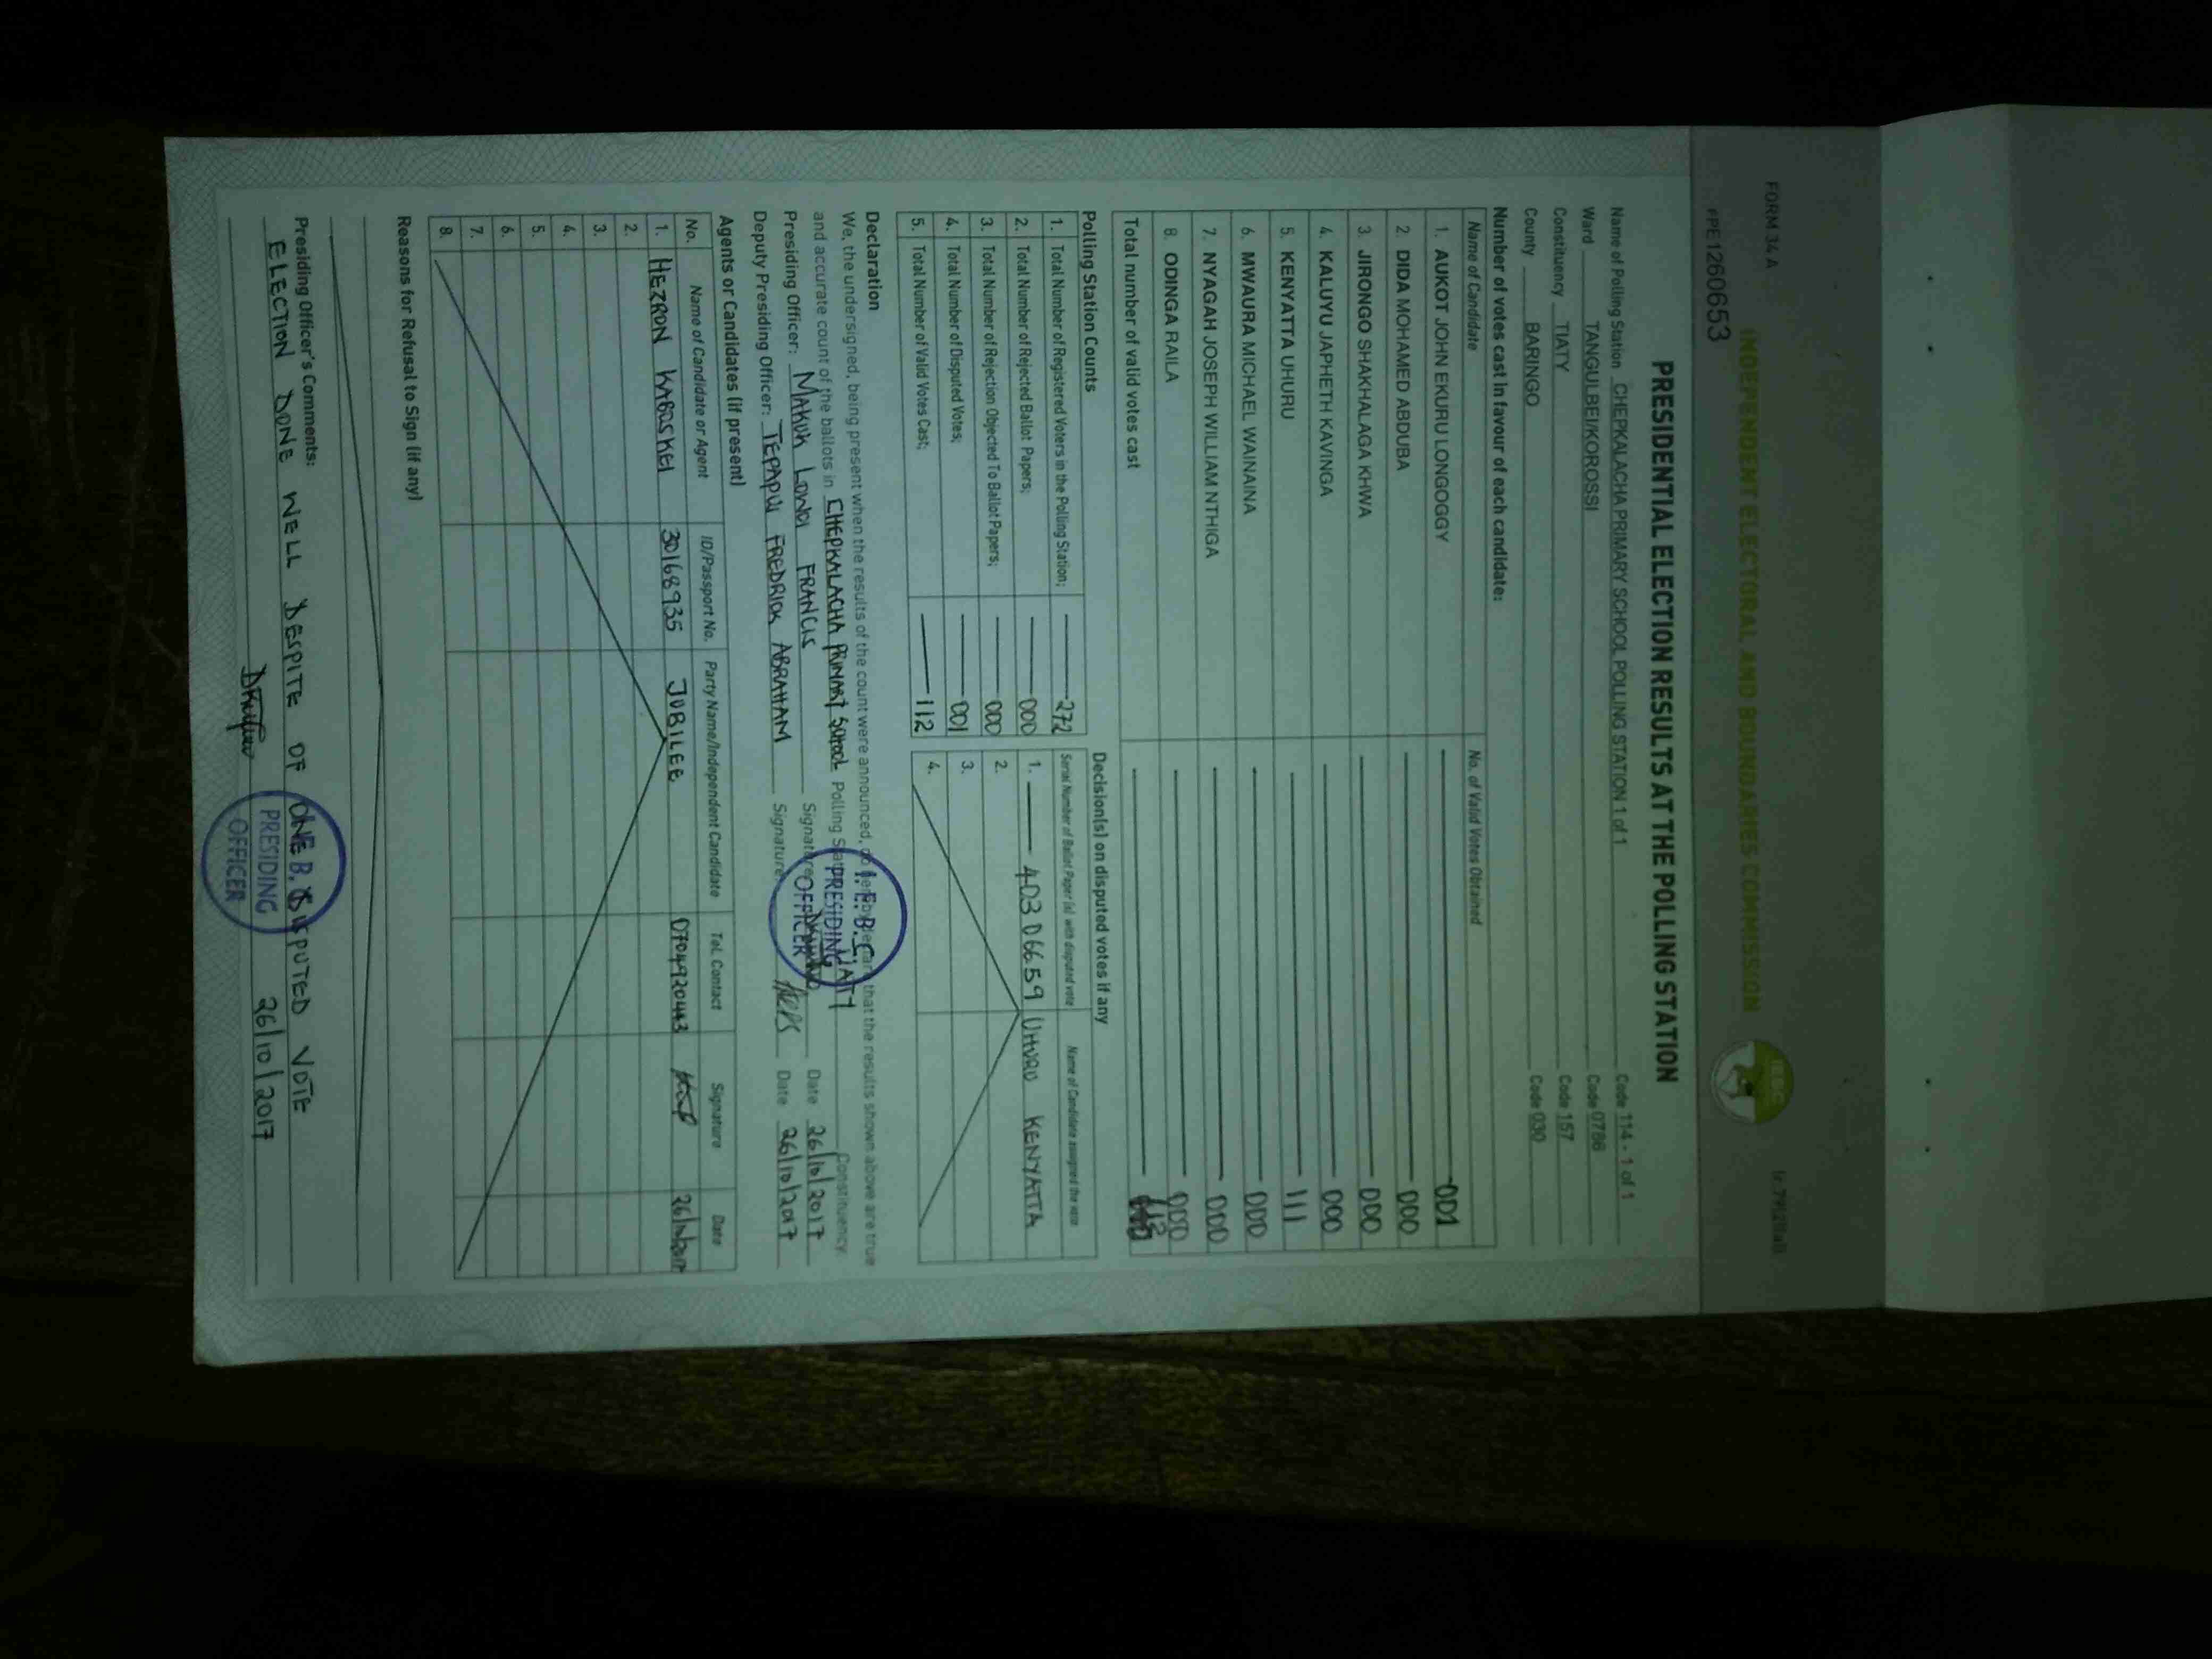 FORM 34 A
INDEPENDENT ELECTORAL AND BOUNDARIES COMMISSION
IEBC
PPE1260653
PRESIDENTIAL ELECTION RESULTS AT THE POLLING STATION
Name of Polling Station CHEPKALACHA PRIMARY SCHOOL POLLING STATION 1 of 1 Code 114 - 1 of 1
Ward TANGULBEI/KOROSSI Code 0786
Constituency TIATY Code 157
County BARINGO Code 030
Number of votes cast in favour of each candidate:
Name of Candidate No. of Valid Votes Obtained
1. AUKOT JOHN EKURU LONGOGGY 001
2. DIDA MOHAMED ABDUBA 000
3. JIRONGO SHAKHALAGA KHWA 000
4. KALUYU JAPHETH KAVINGA 000
5. KENYATTA UHURU 111
6. MWAURA MICHAEL WAINAINA 000
7. NYAGAH JOSEPH WILLIAM NTHIGA 000
8. ODINGA RAILA 000
Total number of valid votes cast 112
Polling Station Counts
1. Total Number of Registered Voters in the Polling Station; 272
2. Total Number of Rejected Ballot Papers; 000
3. Total Number of Rejection Objected To Ballot Papers; 000
4. Total Number of Disputed Votes; 001
5. Total Number of Valid Votes Cast; 112
Decision(s) on disputed votes if any
Serial Number of Ballot Paper (s) with disputed vote Name of Candidate assigned the vote
1. 403 066 59 UHURU KENYATTA
2.
3.
4.
Declaration
We, the undersigned, being present when the results of the count were announced, do hereby declare that the results shown above are true
and accurate count of the ballots in CHEPKALACHA PRIMARY SCHOOL Polling Station TIATY Constituency.
Presiding Officer: MAKUK LOWOI FRANCIS Signature Date 26/10/2017
Deputy Presiding Officer: TEPAPUI FREDRICK ABRAHAM Signature: Date 26/10/2017
I.E.B.C
PRESIDING
OFFICER
Agents or Candidates (if present)
No. Name of Candidate or Agent ID/Passport No. Party Name/Independent Candidate Tel. Contact Signature Date
1. HEZRON KABOSKEI 30168935 JUBILEE 0704920443 26/10/2017
2.
3.
4.
5.
6.
7.
8.
Reasons for Refusal to Sign (if any)
Presiding Officer's Comments:
ELECTION DONE WELL DESPITE OF ONE DISPUTED VOTE
26/10/2017
PRESIDING
OFFICER